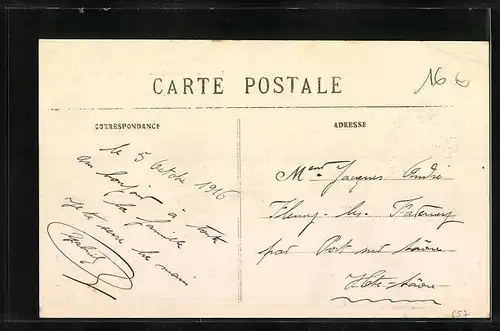 CARTE POSTALE
16 €
CORRESPONDANCE
ADRESSE
le 5 Octobre 1916
un bonjour à toute
la famille
Je te serre la main
Mr Jacques André
Fleurey-les-Faverney
par Port sur Saône
Hte-Saône
657